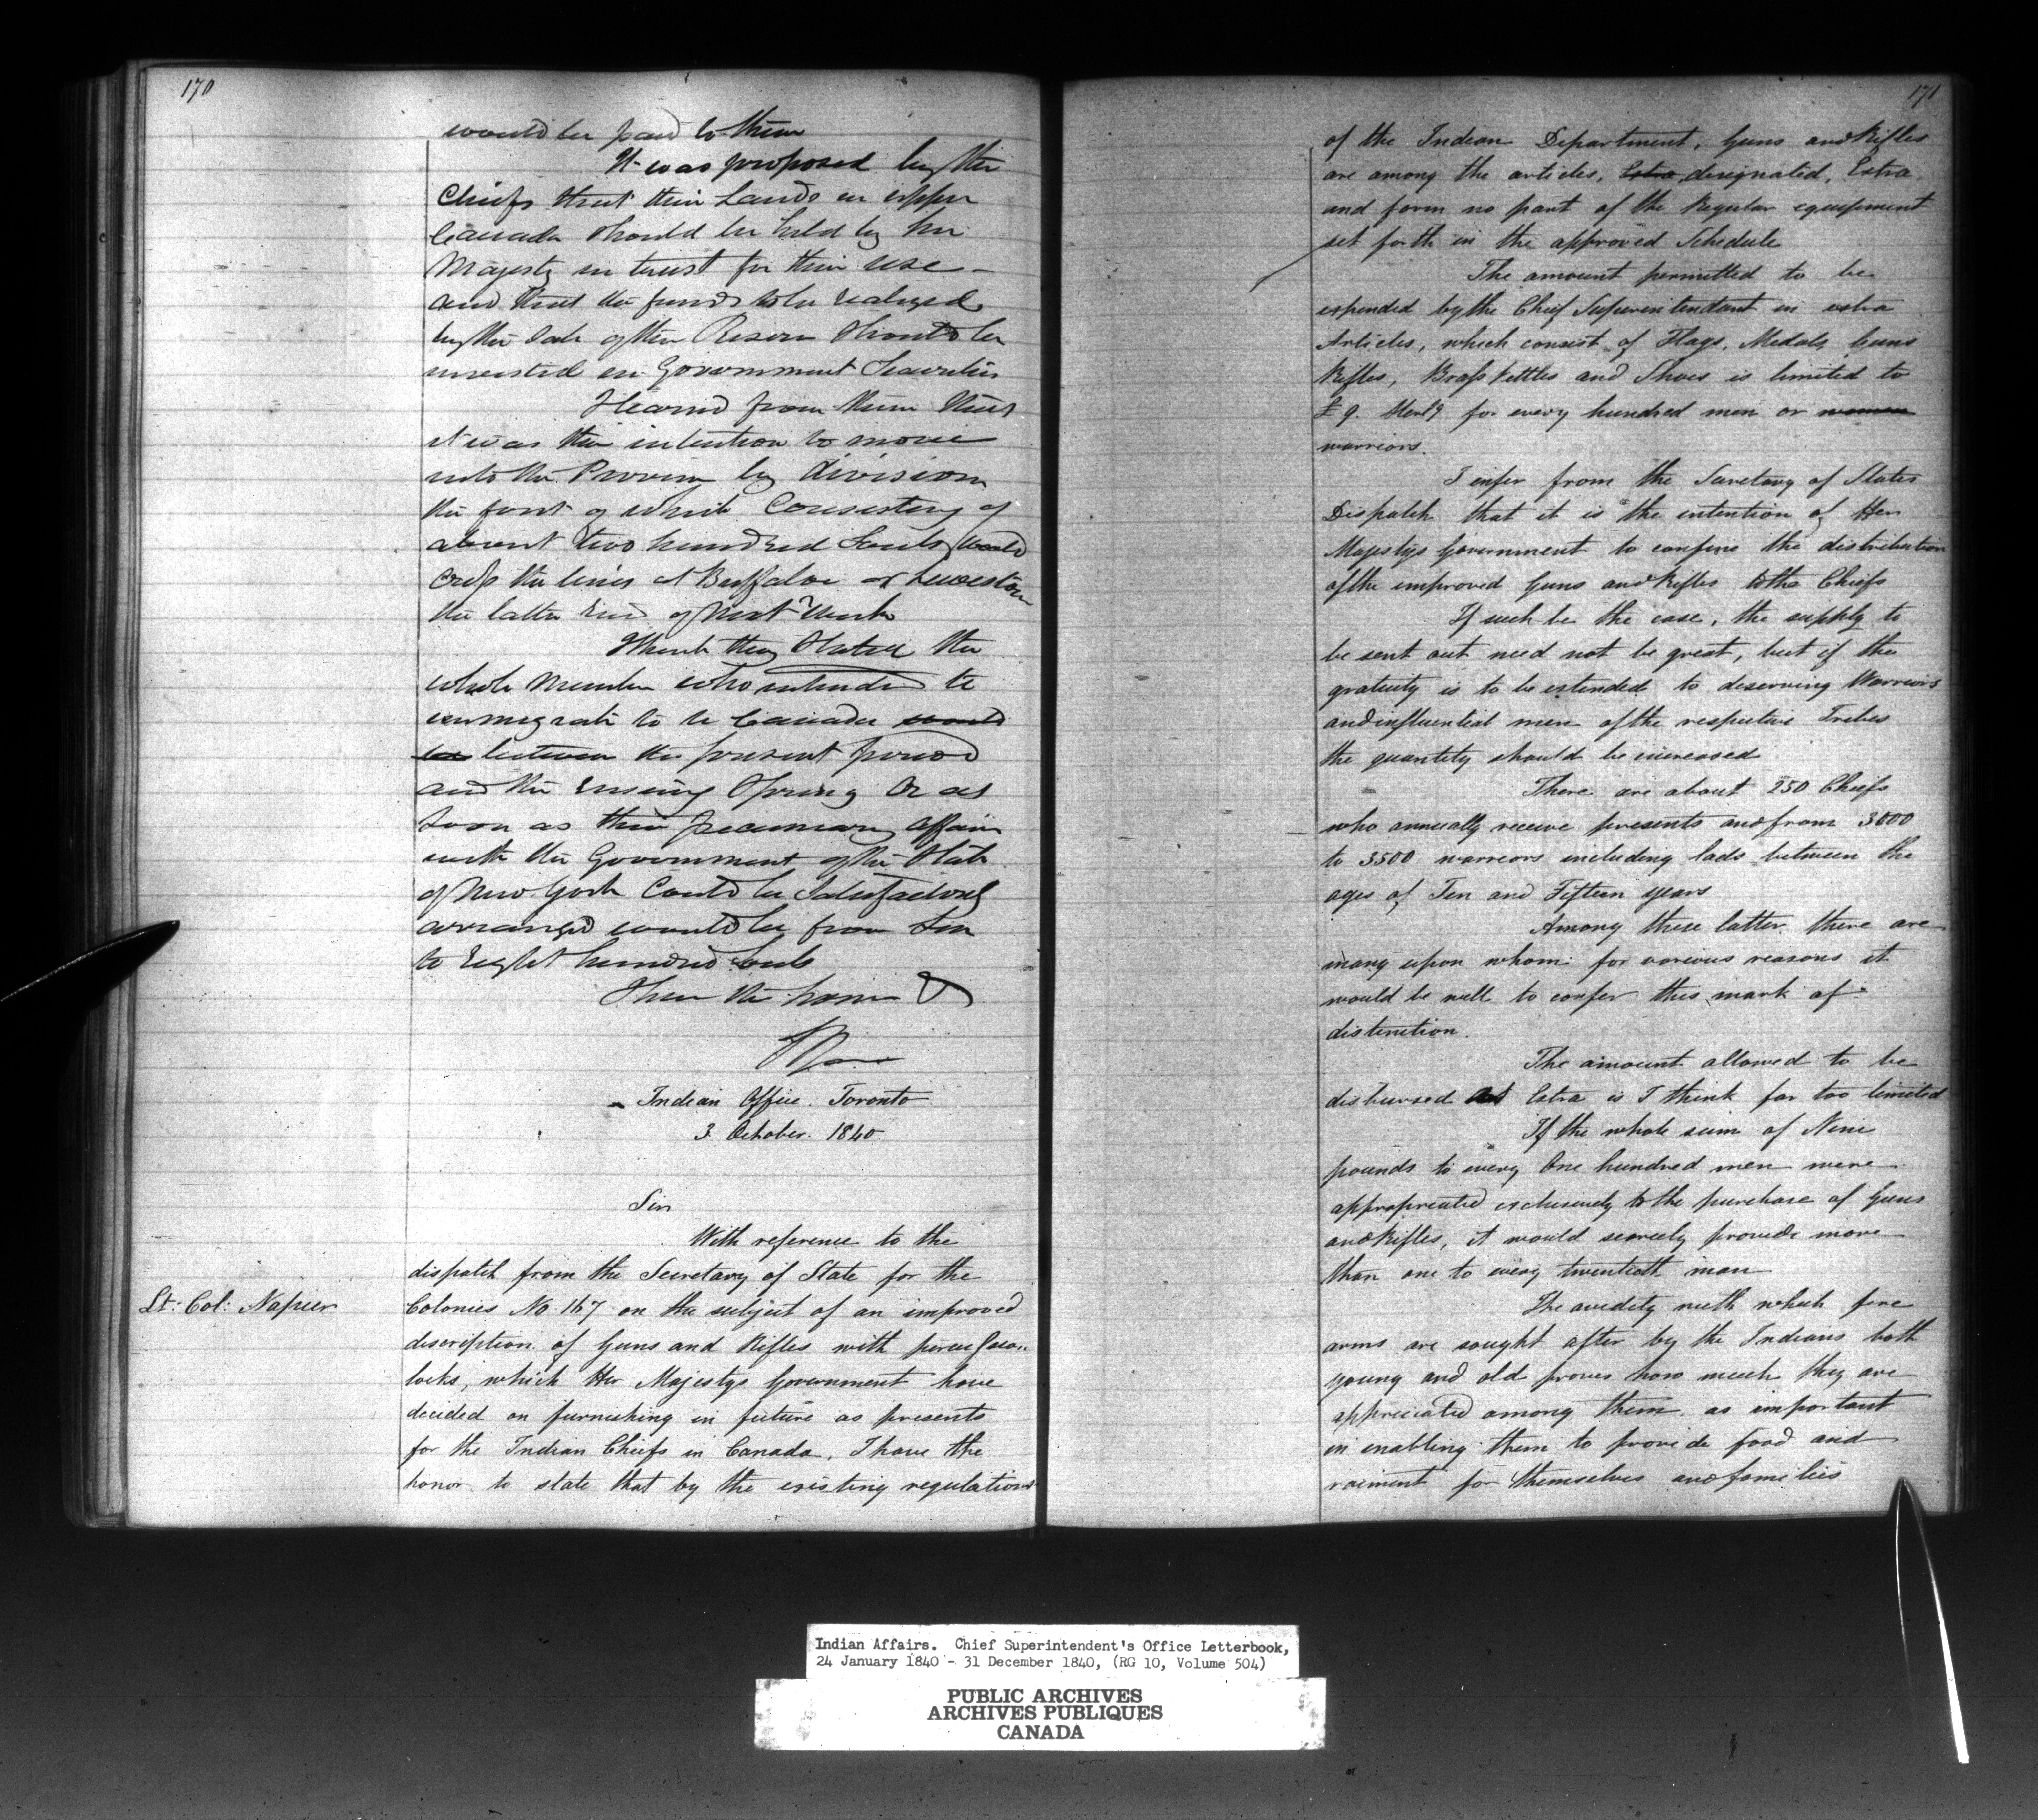 170
would be paid to them
It was proposed by the
Chiefs that their Lands in upper
Canada should be held by her
Majesty in trust for their use -
and that the funds to be realized
by the sale of the Reserve should be
invested in Government Securities
I learnd from them that
it was their intention to move
into the Province by division
the first of which Consisting of
about two hundred Souls would
Cross the lines at Buffaloe or Lewiston
the latter End of next Week
I think they Stated the
whole Number who intended to
emmigrate to Canada would
be between the present period
and the Ensuing Spring Or as
Soon as their pecuniary affairs
with the Government of the State
of New York Could be Satisfactorily
arranged would be from Six
to Eight hundred Souls
I have the honor &
Indian Office. Toronto
3 October. 1840.
Sir
With reference to the
dispatch from the Secretary of State for the
Lt: Col: Napier
Colonies No. 167 on the subject of an improved
description of Guns and Rifles with percussion
locks, which Her Majestys Government have
decided on furnishing in future as presents
for the Indian Chiefs in Canada. I have the
honor to state that by the existing regulations
171
of the Indian Department, Guns and Rifles
are among the articles, Extra designated, Extra
and form no part of the Regular equipment
set forth in the approved Schedule
The amount permitted to be
expended by the Chief Superintendant in extra
Articles, which consist of Flags, Medals, Guns
Rifles, Brass Kettles and Shoes is limited to
£ 9. Sterlg for every hundred men or women
warriors.
I infer from the Secretary of States
Dispatch that it is the intention of Her
Majestys Government to confine the distribution
of the improved Guns and Rifles to the Chiefs
If such be the case, the supply to
be sent out need not be great, but if the
gratuity is to be extended to deserving Warriors
and influential men of the respective Tribes
the quantity should be increased
There are about 250 Chiefs
who annually receive presents and from 3000
to 3500 warriors including lads between the
ages of Ten and Fifteen years
Among these latter there are
many upon whom for various reasons it
would be well to confer this mark of
distinction.
The amount allowed to be
disbursed as Extra is I think far too limited
If the whole sum of Nine
pounds to every One hundred men were
appropriated exclusively to the purchase of Guns
and Rifles, it would scarcely provide more
than one to every twentieth man
The avidity with which fire
arms are sought after by the Indians both
young and old proves how much they are
appreciated among them as important
in enabling them to provide food and
raiment for themselves and families
Indian Affairs. Chief Superintendent's Office Letterbook,
24 January 1840 - 31 December 1840, (RG 10, Volume 504)
PUBLIC ARCHIVES
ARCHIVES PUBLIQUES
CANADA